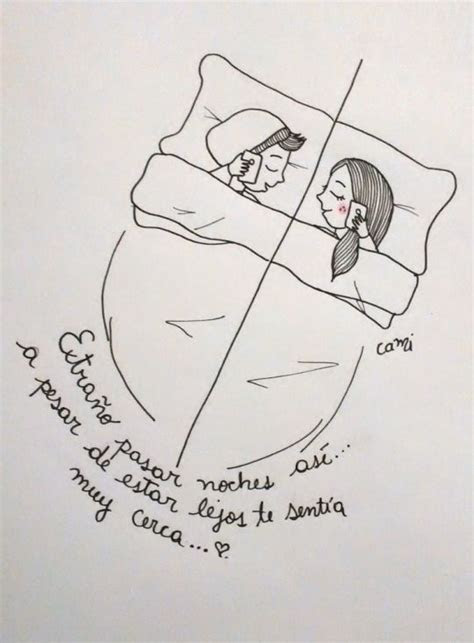 cami
Extraño pasar noches así...
a pesar de estar lejos te sentía
muy cerca...♡